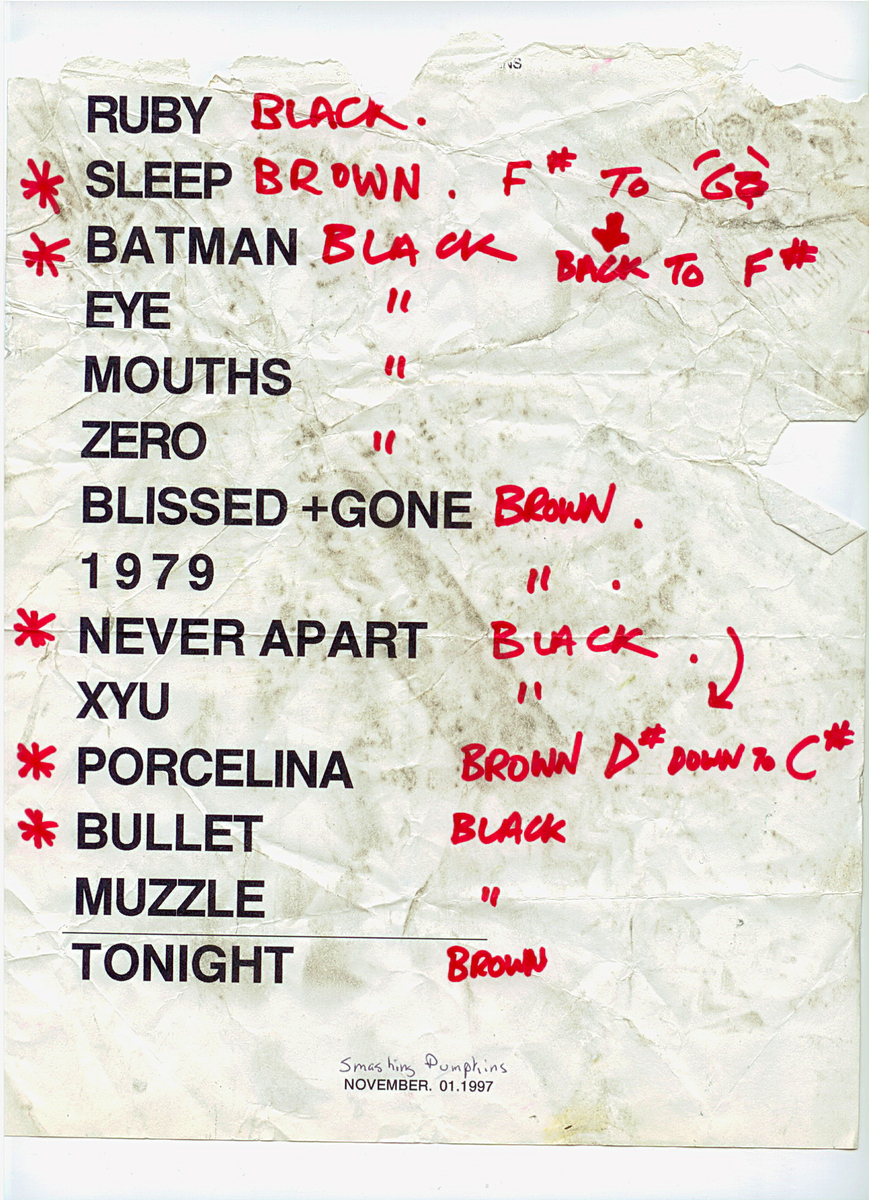 NS
RUBY BLACK.
* SLEEP BROWN. F# TO "G"
* BATMAN BLACK BACK TO F#
EYE "
MOUTHS "
ZERO "
BLISSED +GONE BROWN.
1979 " .
* NEVER APART BLACK.
XYU "
* PORCELINA BROWN D# DOWN TO C#
* BULLET BLACK
MUZZLE "
TONIGHT BROWN
Smashing Pumpkins
NOVEMBER. 01.1997